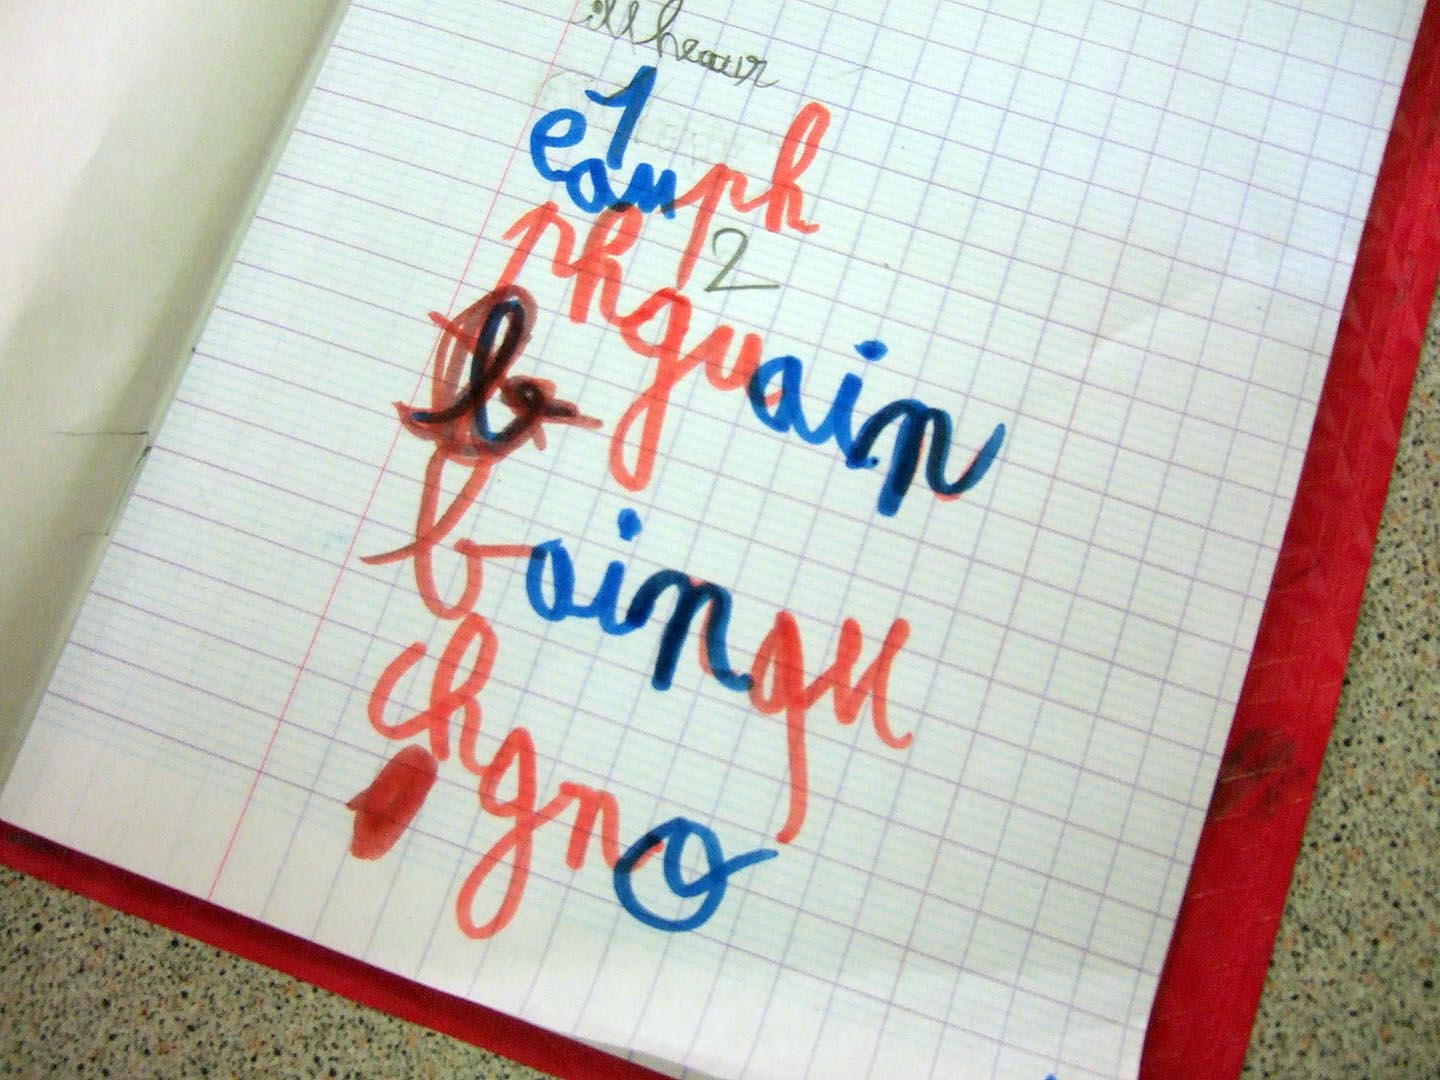 illheaur
1
eauph
2
phguain
b
baingu
chgno